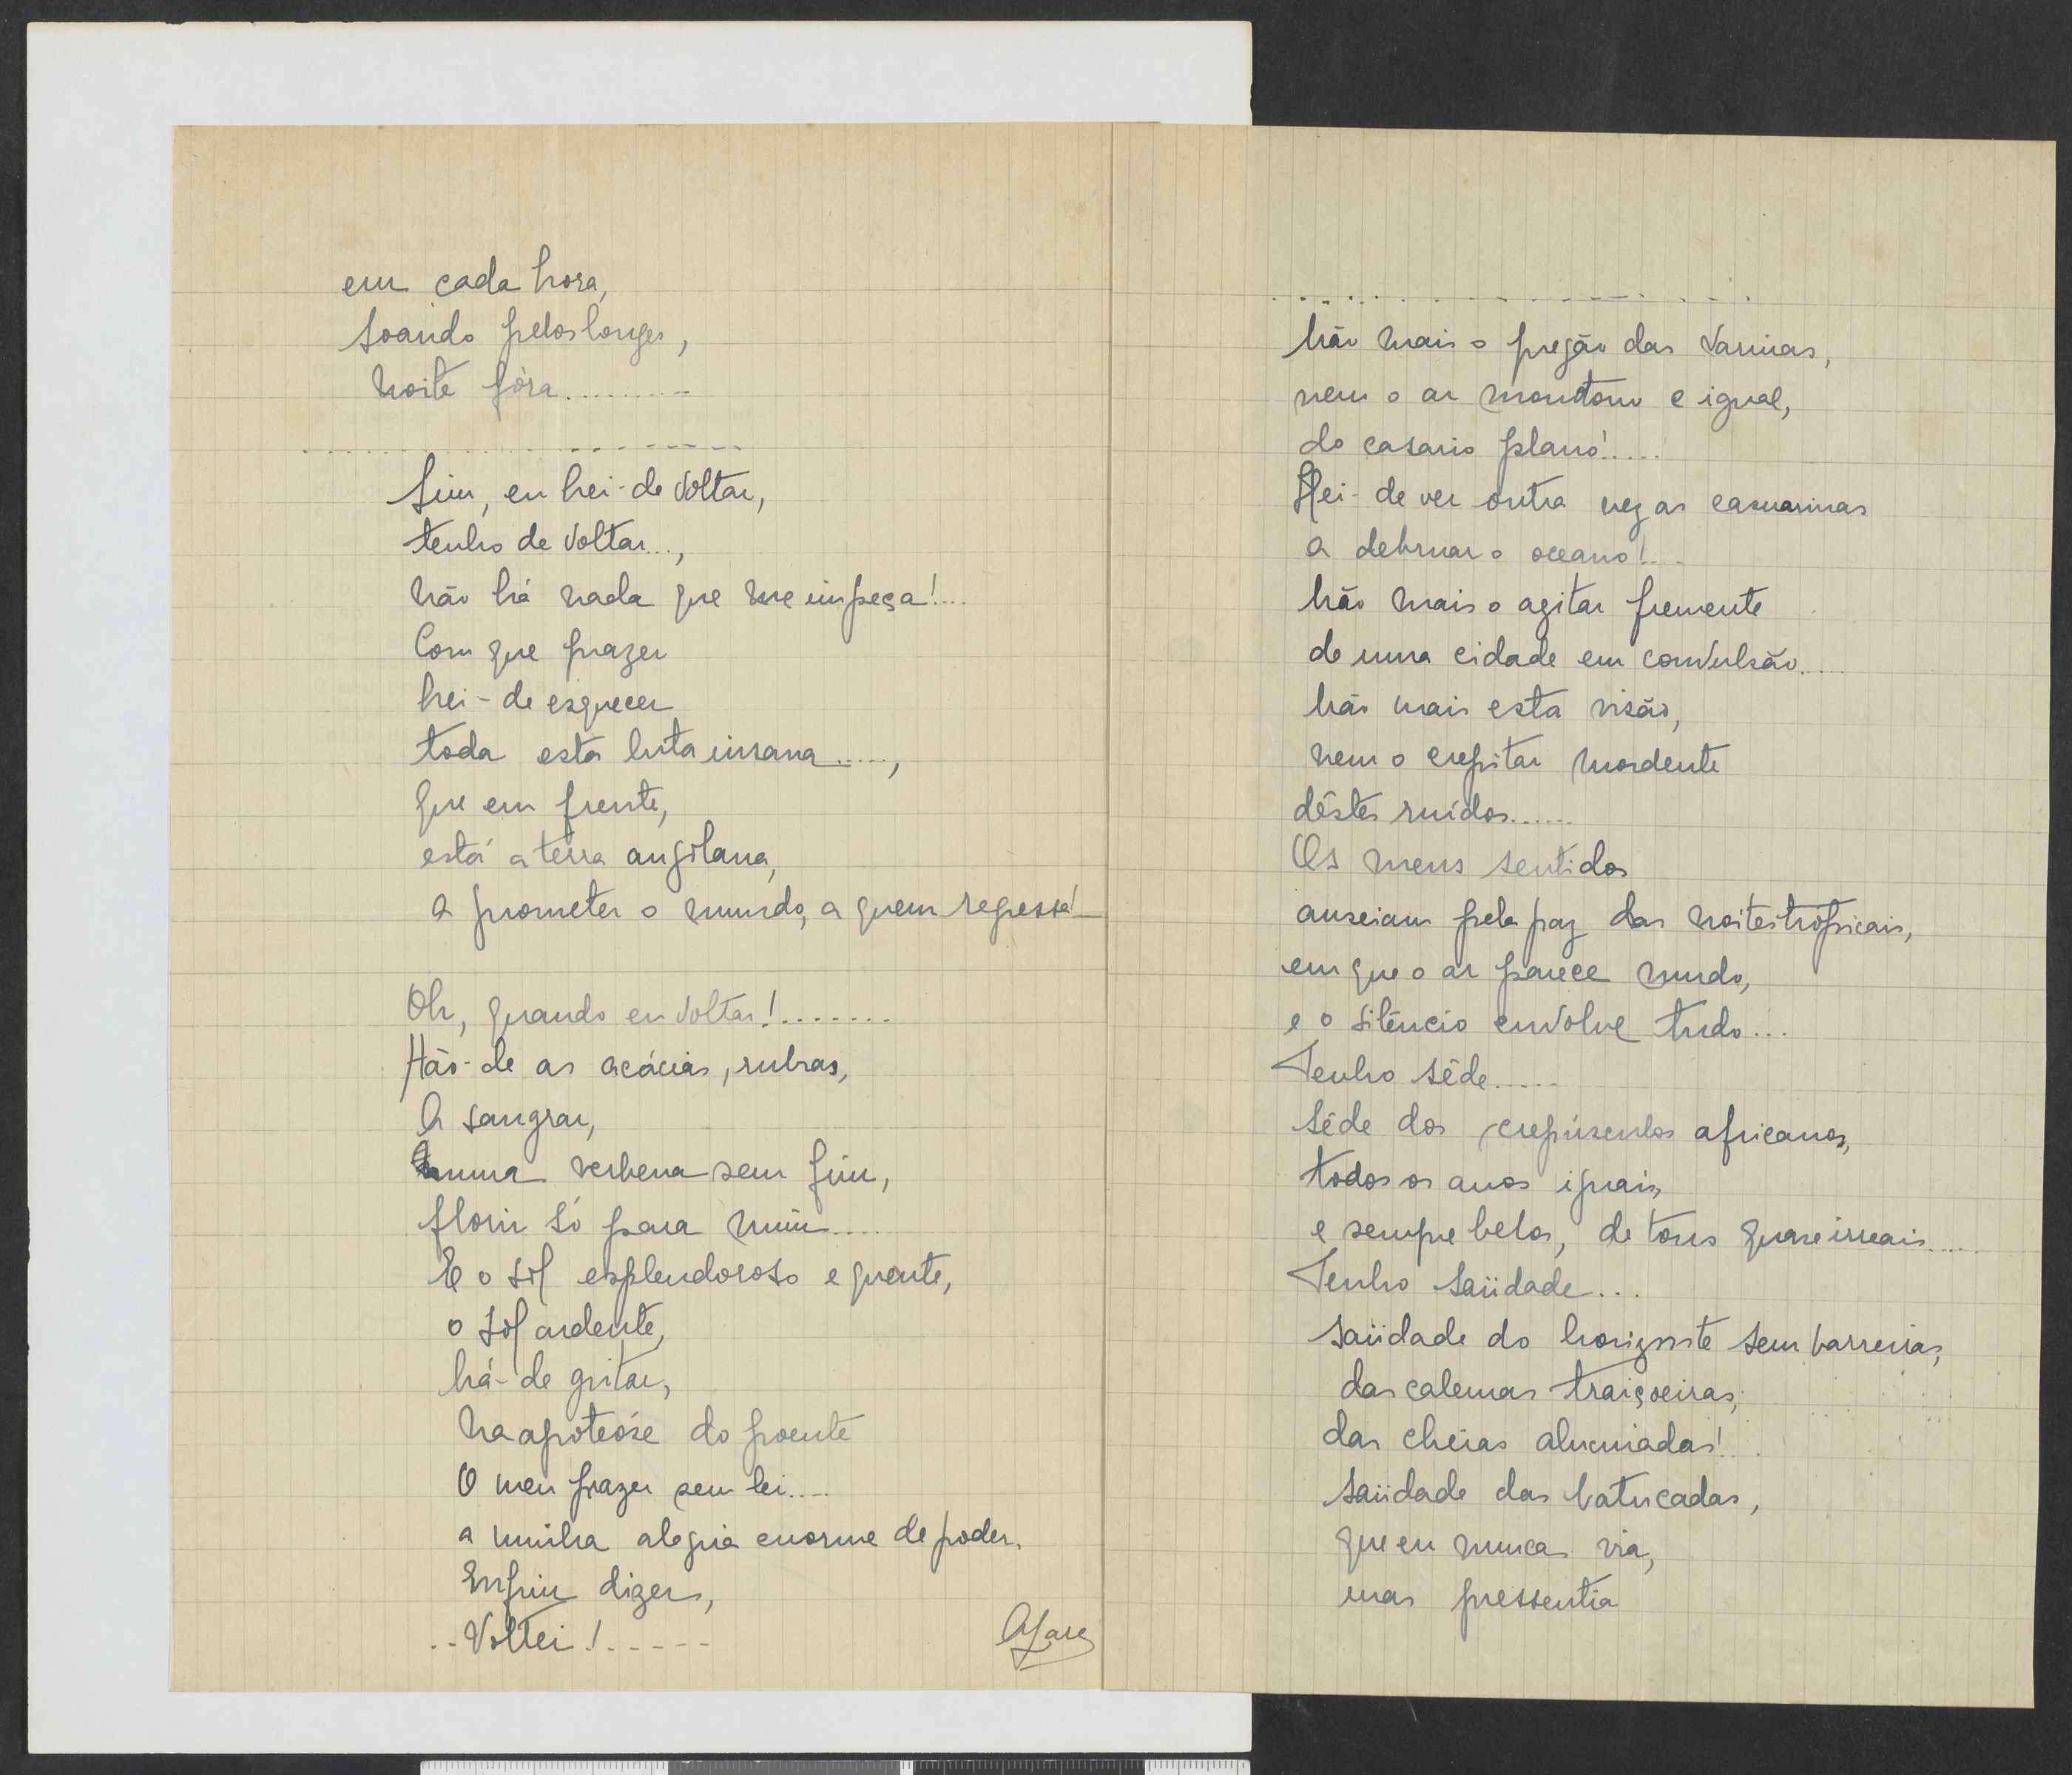 em cada hora,
soando pelos longes,
noite fóra..........
......................
Sim, eu hei-de voltar,
tenho de voltar...,
não há nada que me impeça!....
Com que prazer
hei-de esquecer
toda esta luta insana.....,
que em frente,
está a terra angolana,
a prometer o mundo, a quem regressa!
Oh, quando eu voltar!........
Hão-de as acácias, rubras,
a sangrar,
numa verbena sem fim,
florir só para mim....
E o sol esplendoroso e quente,
o sol ardente,
há-de gritar,
na apoteóse do poente
o meu prazer sem lei....
a minha alegria enorme de poder,
Enfim dizer,
..Voltei!.....
......................
Não mais o pregão das varinas,
nem o ar monótono e igual,
do casario plano!....
Hei-de ver outra vez as casuarinas
a debruar o oceano!...
Não mais o agitar fremente
de uma cidade em convulsão....
Não mais esta visão,
nem o crepitar mordente
dêstes ruídos......
Os meus sentidos
anseiam pela paz das noites tropicais,
em que o ar parece mudo,
e o silêncio envolve tudo...
Tenho sêde.....
sêde dos crepúsculos africanos,
todos os anos iguais,
e sempre belos, de tons quase irreais....
Tenho saüdade...
saüdade do horizonte sem barreiras,
das calemas traiçoeiras,
das cheias alucinadas!..
saüdade das batucadas,
que eu nunca via,
mas pressentia